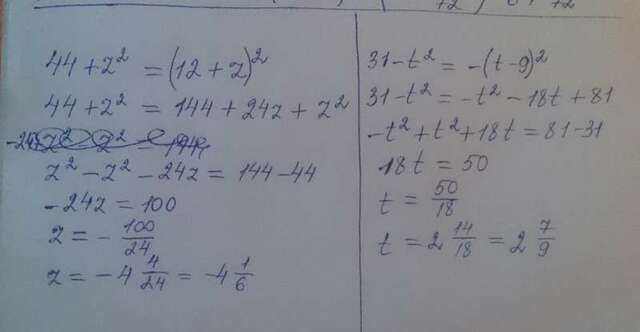 44 + z² = (12 + z)²
44 + z² = 144 + 24z + z²
z² - z² - 24z = 144 - 44
-24z = 100
z = - 100/24
z = -4 4/24 = -4 1/6
31 - t² = -(t - 9)²
31 - t² = -t² - 18t + 81
-t² + t² + 18t = 81 - 31
18t = 50
t = 50/18
t = 2 14/18 = 2 7/9